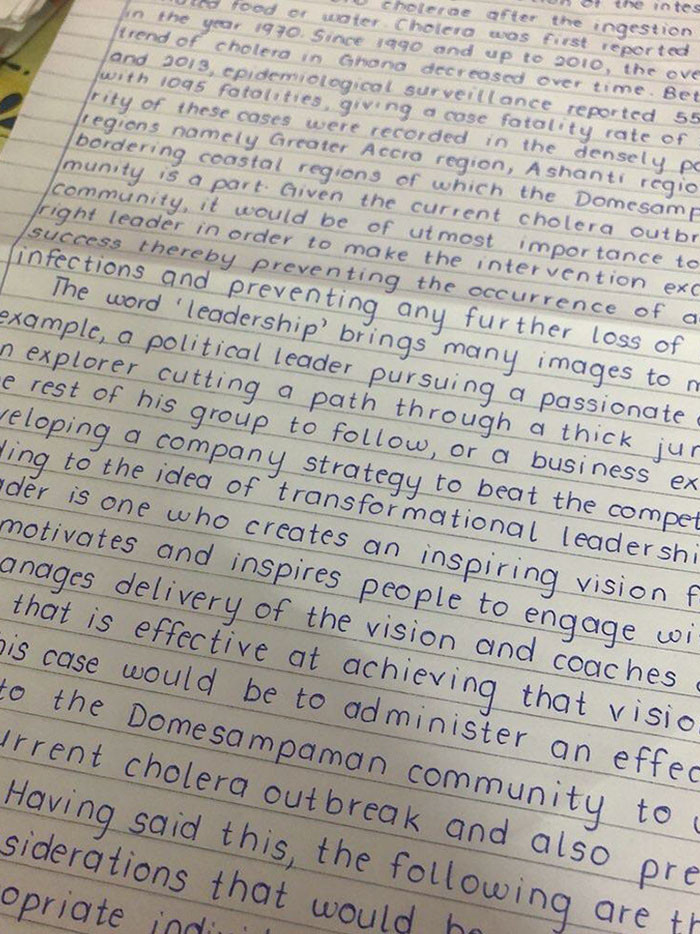 food or water. Cholera was first reported
cholerae after the ingestion
in the year 1970. Since 1990 and up to 2010, the
trend of cholera in Ghana decreased over time.
and 2013, epidemiological surveillance reported 55
with 1095 fatalities, giving a case fatality rate of
rity of these cases were recorded in the densely
regions namely Greater Accra region, Ashanti
bordering coastal regions of which the
munity is a part. Given the current cholera
community, it would be of utmost importance to
right leader in order to make the intervention
success thereby preventing the occurrence of
infections and preventing any further loss of
The word 'leadership' brings many images to
example, a political leader pursuing a passionate
n explorer cutting a path through a thick
e rest of his group to follow, or a business
veloping a company strategy to beat the
ding to the idea of transformational
der is one who creates an inspiring vision
motivates and inspires people to engage
anages delivery of the vision and coaches
that is effective at achieving that
his case would be to administer an
to the Domesampaman community to
urrent cholera outbreak and also
Having said this, the following are
siderations that would
opriate